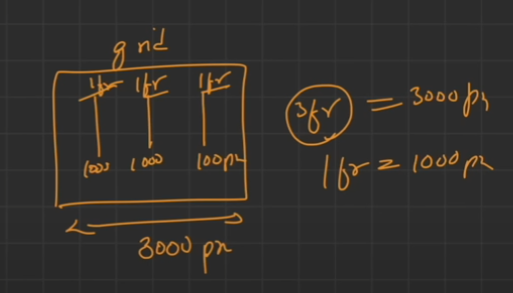 grid
1fr 1fr 1fr
1000 1000 100px
3000 px
3fr = 3000 px
1fr = 1000 px